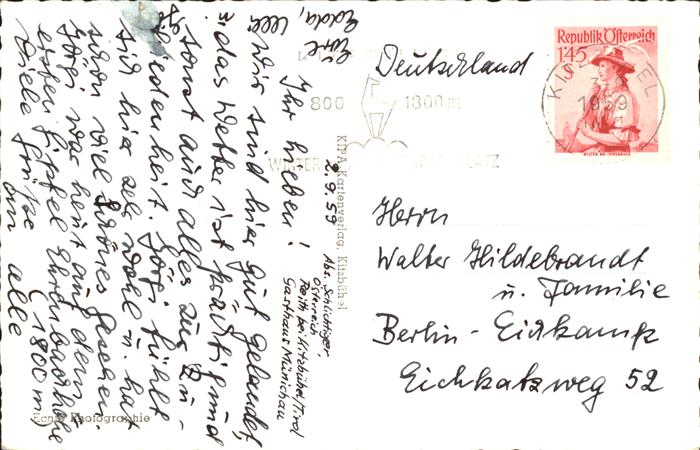 2.9.59
Abs. Schlichtiger,
Österreich
Reith bei Kitzbühel/Tirol
Gasthaus Münichau
Ihr Lieben!
Wir sind hier gut gelandet,
das Wetter ist prächtig und
sonst auch alles zur Zu-
friedenheit. Görj fühlt
sich hier sehr wohl u. hat
schon viel Schönes gesehen.
Görj war heut auf dem
ersten Gipfel Ehrenbachhöhe
(1800 m)
Viele Grüße
an alle
Edda,
KIPA-Kartenverlag, Kitzbühel
Echte Photographie
Deutschland
Republik Österreich
1'45
S
WILTEN BEI INNSBRUCK
1959
800 1800 m
WINTER
Herrn
Walter Hildebrandt
u. Familie
Berlin-Eichkamp
Eichkatzweg 52